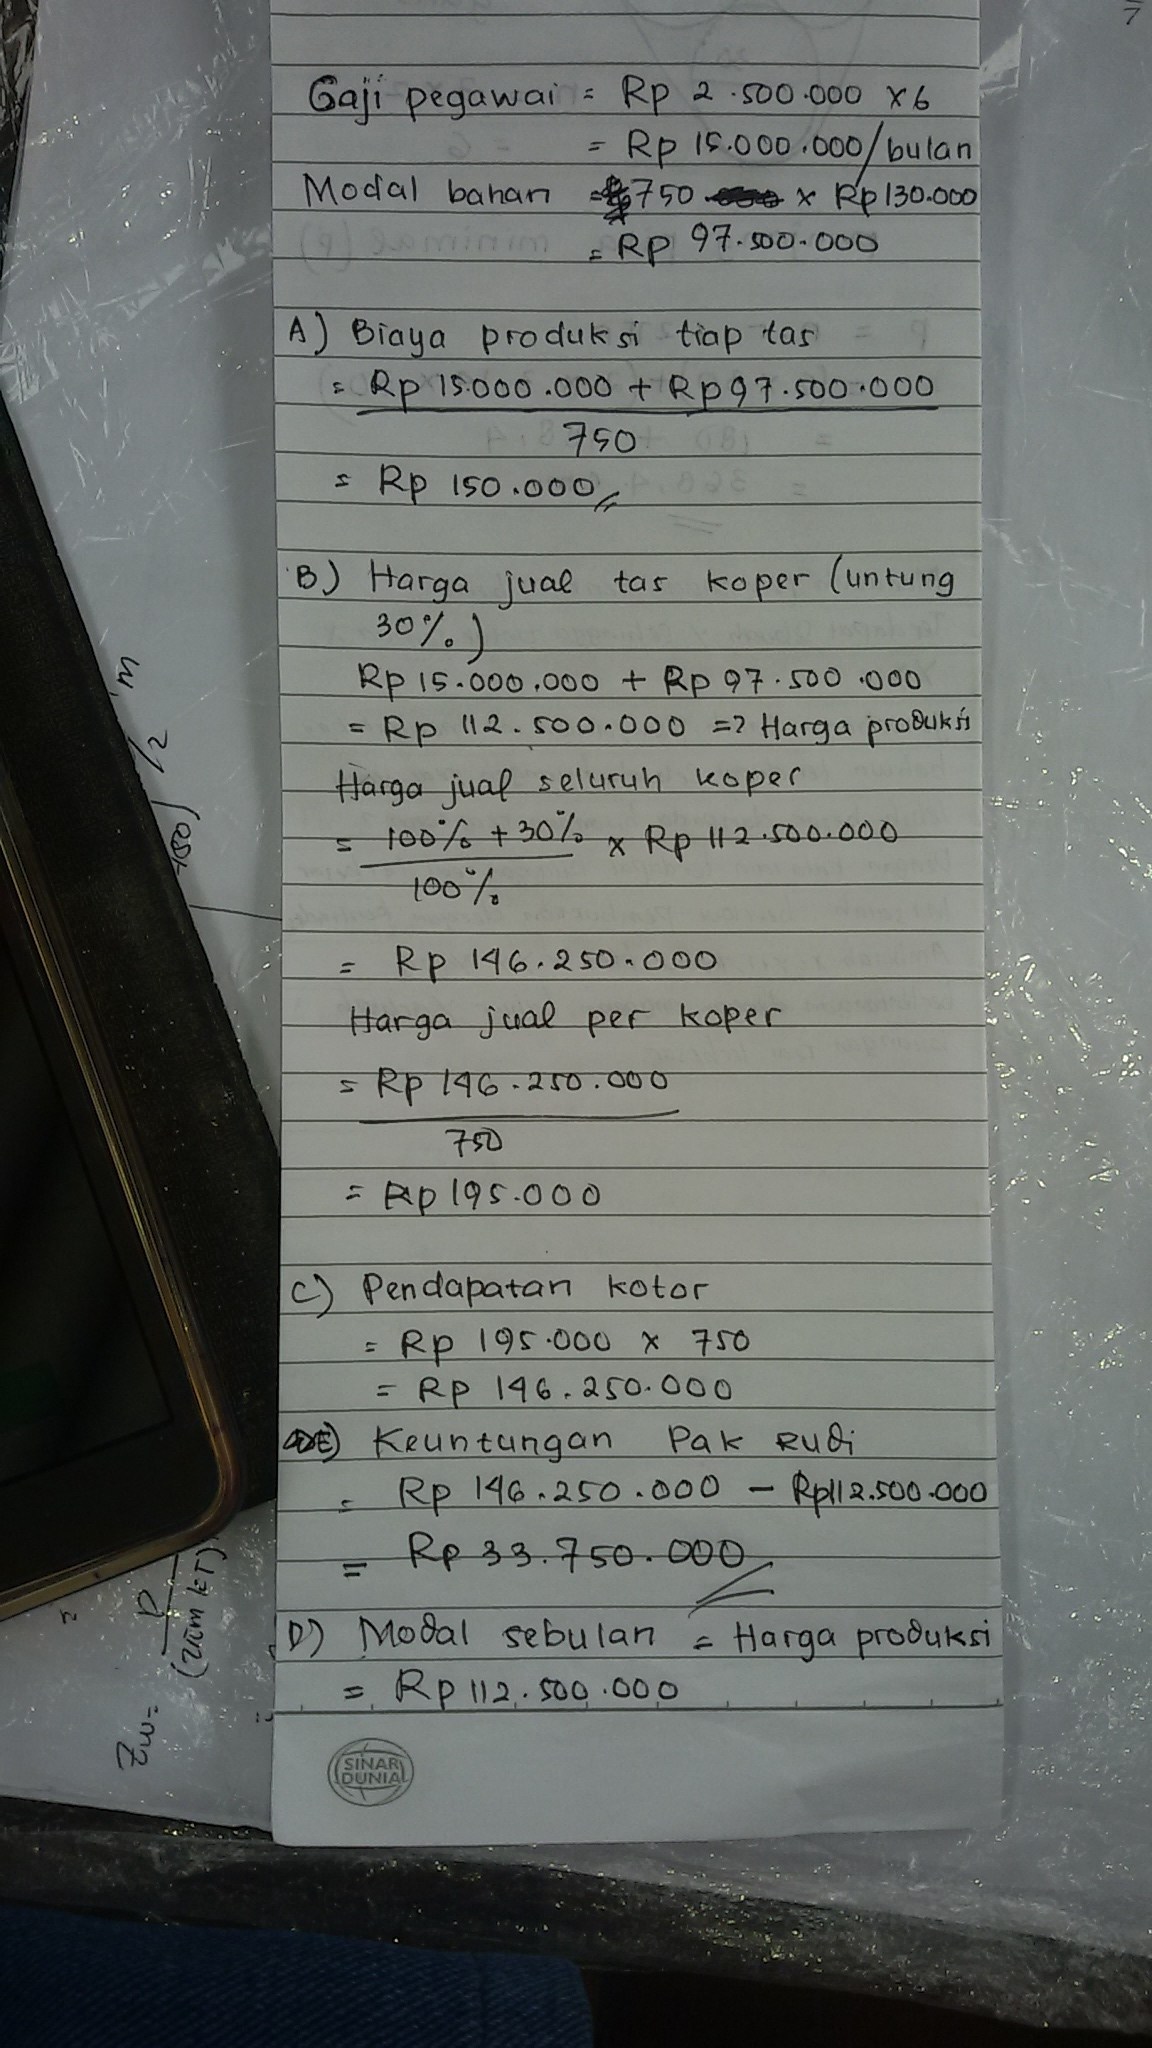 Gaji pegawai = Rp 2.500.000 x 6
= Rp 15.000.000/bulan
Modal bahan = 750 x Rp 130.000
= Rp 97.500.000
A) Biaya produksi tiap tas
= Rp 15.000.000 + Rp 97.500.000
750
= Rp 150.000
B) Harga jual tas koper (untung
30%)
Rp 15.000.000 + Rp 97.500.000
= Rp 112.500.000 => Harga produksi
Harga jual seluruh koper
= 100% + 30% x Rp 112.500.000
100%
= Rp 146.250.000
Harga jual per koper
= Rp 146.250.000
750
= Rp 195.000
C) Pendapatan kotor
= Rp 195.000 x 750
= Rp 146.250.000
E) Keuntungan Pak Rudi
= Rp 146.250.000 - Rp 112.500.000
= Rp 33.750.000
D) Modal sebulan = Harga produksi
= Rp 112.500.000
SINAR
DUNIA